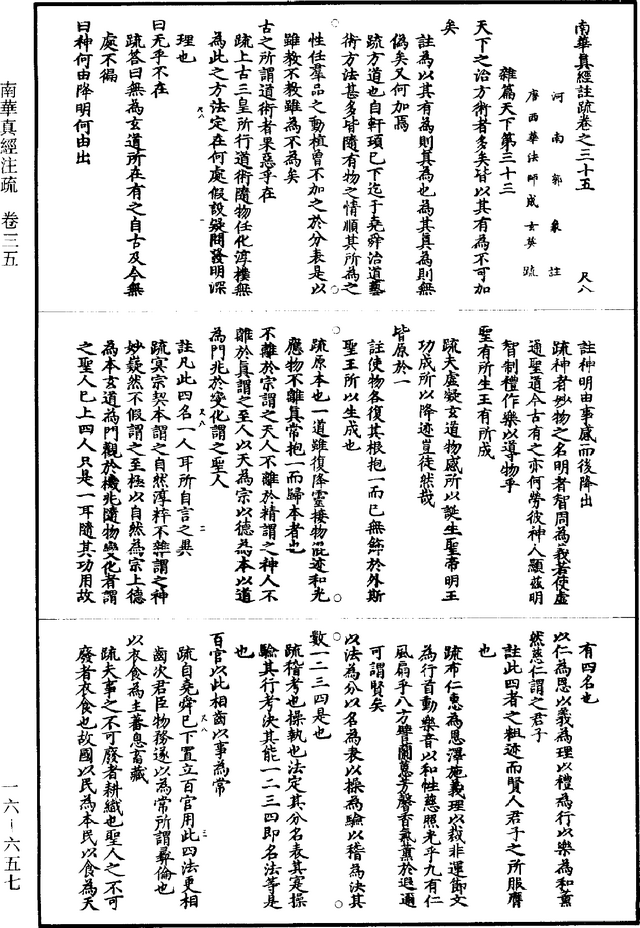 南華真經註疏卷之三十五　尺八
河南郭象註
唐西華法師成玄英疏
雜篇天下第三十三
天下之治方術者多矣皆以其有為不可加
矣
註為以其有為則真為也為其真為則無
偽矣又何加焉
疏方道也自軒頊已下迄于堯舜治道藝
術方法甚多皆隨有物之情順其所為之
性任羣品之動植曾不加之於分表是以
雖教不教雖為不為矣
古之所謂道術者果惡乎在
疏上古三皇所行道術隨物任化淳樸無
為此之方法定在何處假設疑問發明深
理也
曰無乎不在
疏答曰無為玄道所在有之自古及今無
處不徧
曰神何由降明何由出
註神明由事感而後降出
疏神者妙物之名明者智周為義若使虛
通聖道今古有之亦何勞彼神人顯茲明
智制禮作樂以導物乎
聖有所生王有所成
疏夫虛凝玄道物感所以誕生聖帝明王
功成所以降迹豈徒然哉
皆原於一
註使物各復其根抱一而已無飾於外斯
聖王所以生成也
疏原本也一道雖復降靈接物混迹和光
應物不離真常抱一而歸本者也
不離於宗謂之天人不離於精謂之神人不
離於真謂之至人以天為宗以德為本以道
為門兆於變化謂之聖人
註凡此四名一人耳所自言之異
疏冥宗契本謂之自然淳粹不雜謂之神
妙嶷然不假謂之至極以自然為宗上德
為本玄道為門觀於機兆隨物變化者謂
之聖人已上四人只是一耳隨其功用故
有四名也
以仁為恩以義為理以禮為行以樂為和薰
然慈仁謂之君子
註此四者之粗迹而賢人君子之所服膺
也
疏布仁惠為恩澤施義理以裁非運節文
為行首動樂音以和性慈照光乎九有仁
風扇乎八方譬蘭蕙芳馨香氣薰於遐邇
可謂賢矣
以法為分以名為表以操為驗以稽為決其
數一二三四是也
疏稽考也操執也法定其分名表其實操
驗其行考決其能一二三四即名法等是
也
百官以此相齒以事為常
疏自堯舜已下置立百官用此四法更相
齒次君臣物務遂以為常所謂彝倫也
以衣食為主蕃息畜藏
疏夫事之不可廢者耕織也聖人之不可
廢者衣食也故國以民為本民以食為天
南華真經注疏　卷三五
一六–六五七